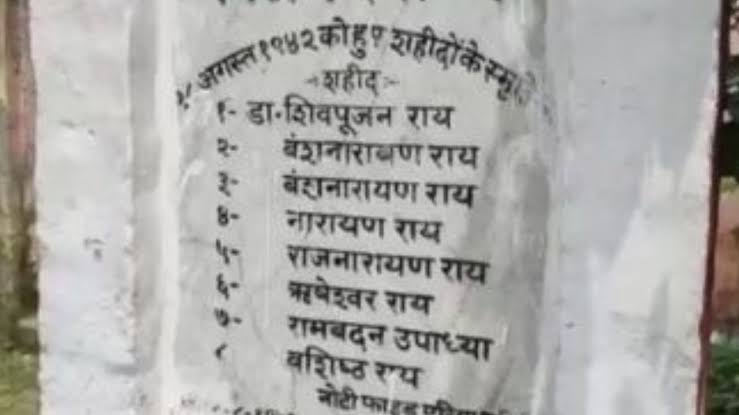 अगस्त १९४२ को हुए शहीदों के
शहीद
१- डा॰ शिवपूजन राय
२- बंशनारायण राय
३- बंशनारायण राय
४- नारायण राय
५- राजनारायण राय
६- ऋषेश्वर राय
७- रामबदन उपाध्या
८ बशिष्ठ राय
नोटीफाइड